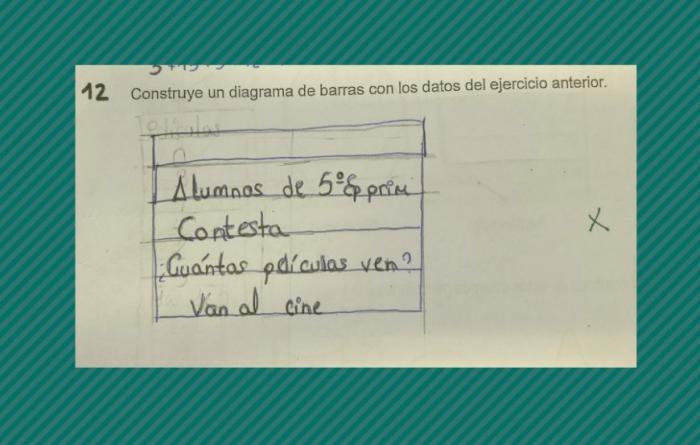 12 Construye un diagrama de barras con los datos del ejercicio anterior.
Películas
Alumnos de 5º
Contesta
¿Cuántas películas ven?
Van al cine
X